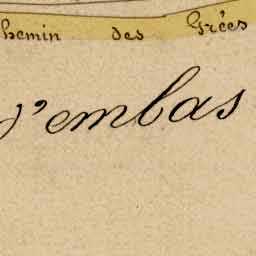 Chemin des Grées
d'embas